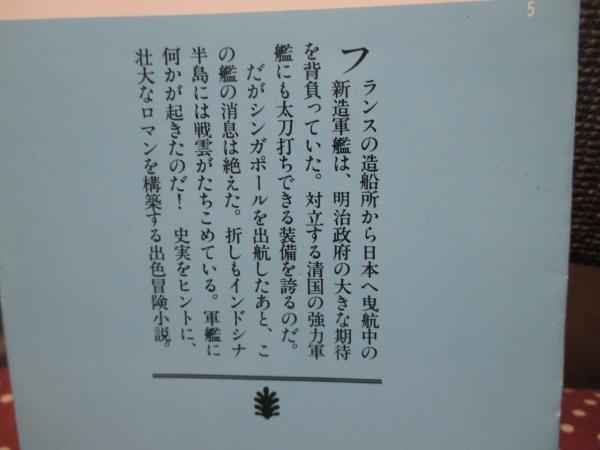 5
フランスの造船所から日本へ曳航中の
新造軍艦は、明治政府の大きな期待
を背負っていた。対立する清国の強力軍
艦にも太刀打ちできる装備を誇るのだ。
だがシンガポールを出航したあと、こ
の艦の消息は絶えた。折しもインドシナ
半島には戦雲がたちこめている。軍艦に
何かが起きたのだ！　史実をヒントに、
壮大なロマンを構築する出色冒険小説。